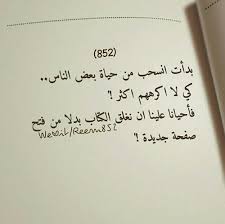 (852)
بدأت انسحب من حياة بعض الناس..
كي لا اكرههم اكثر !'
فأحيانا علينا ان نغلق الكتاب بدلا من فتح
صفحة جديدة !'
Weheartit/Reem852